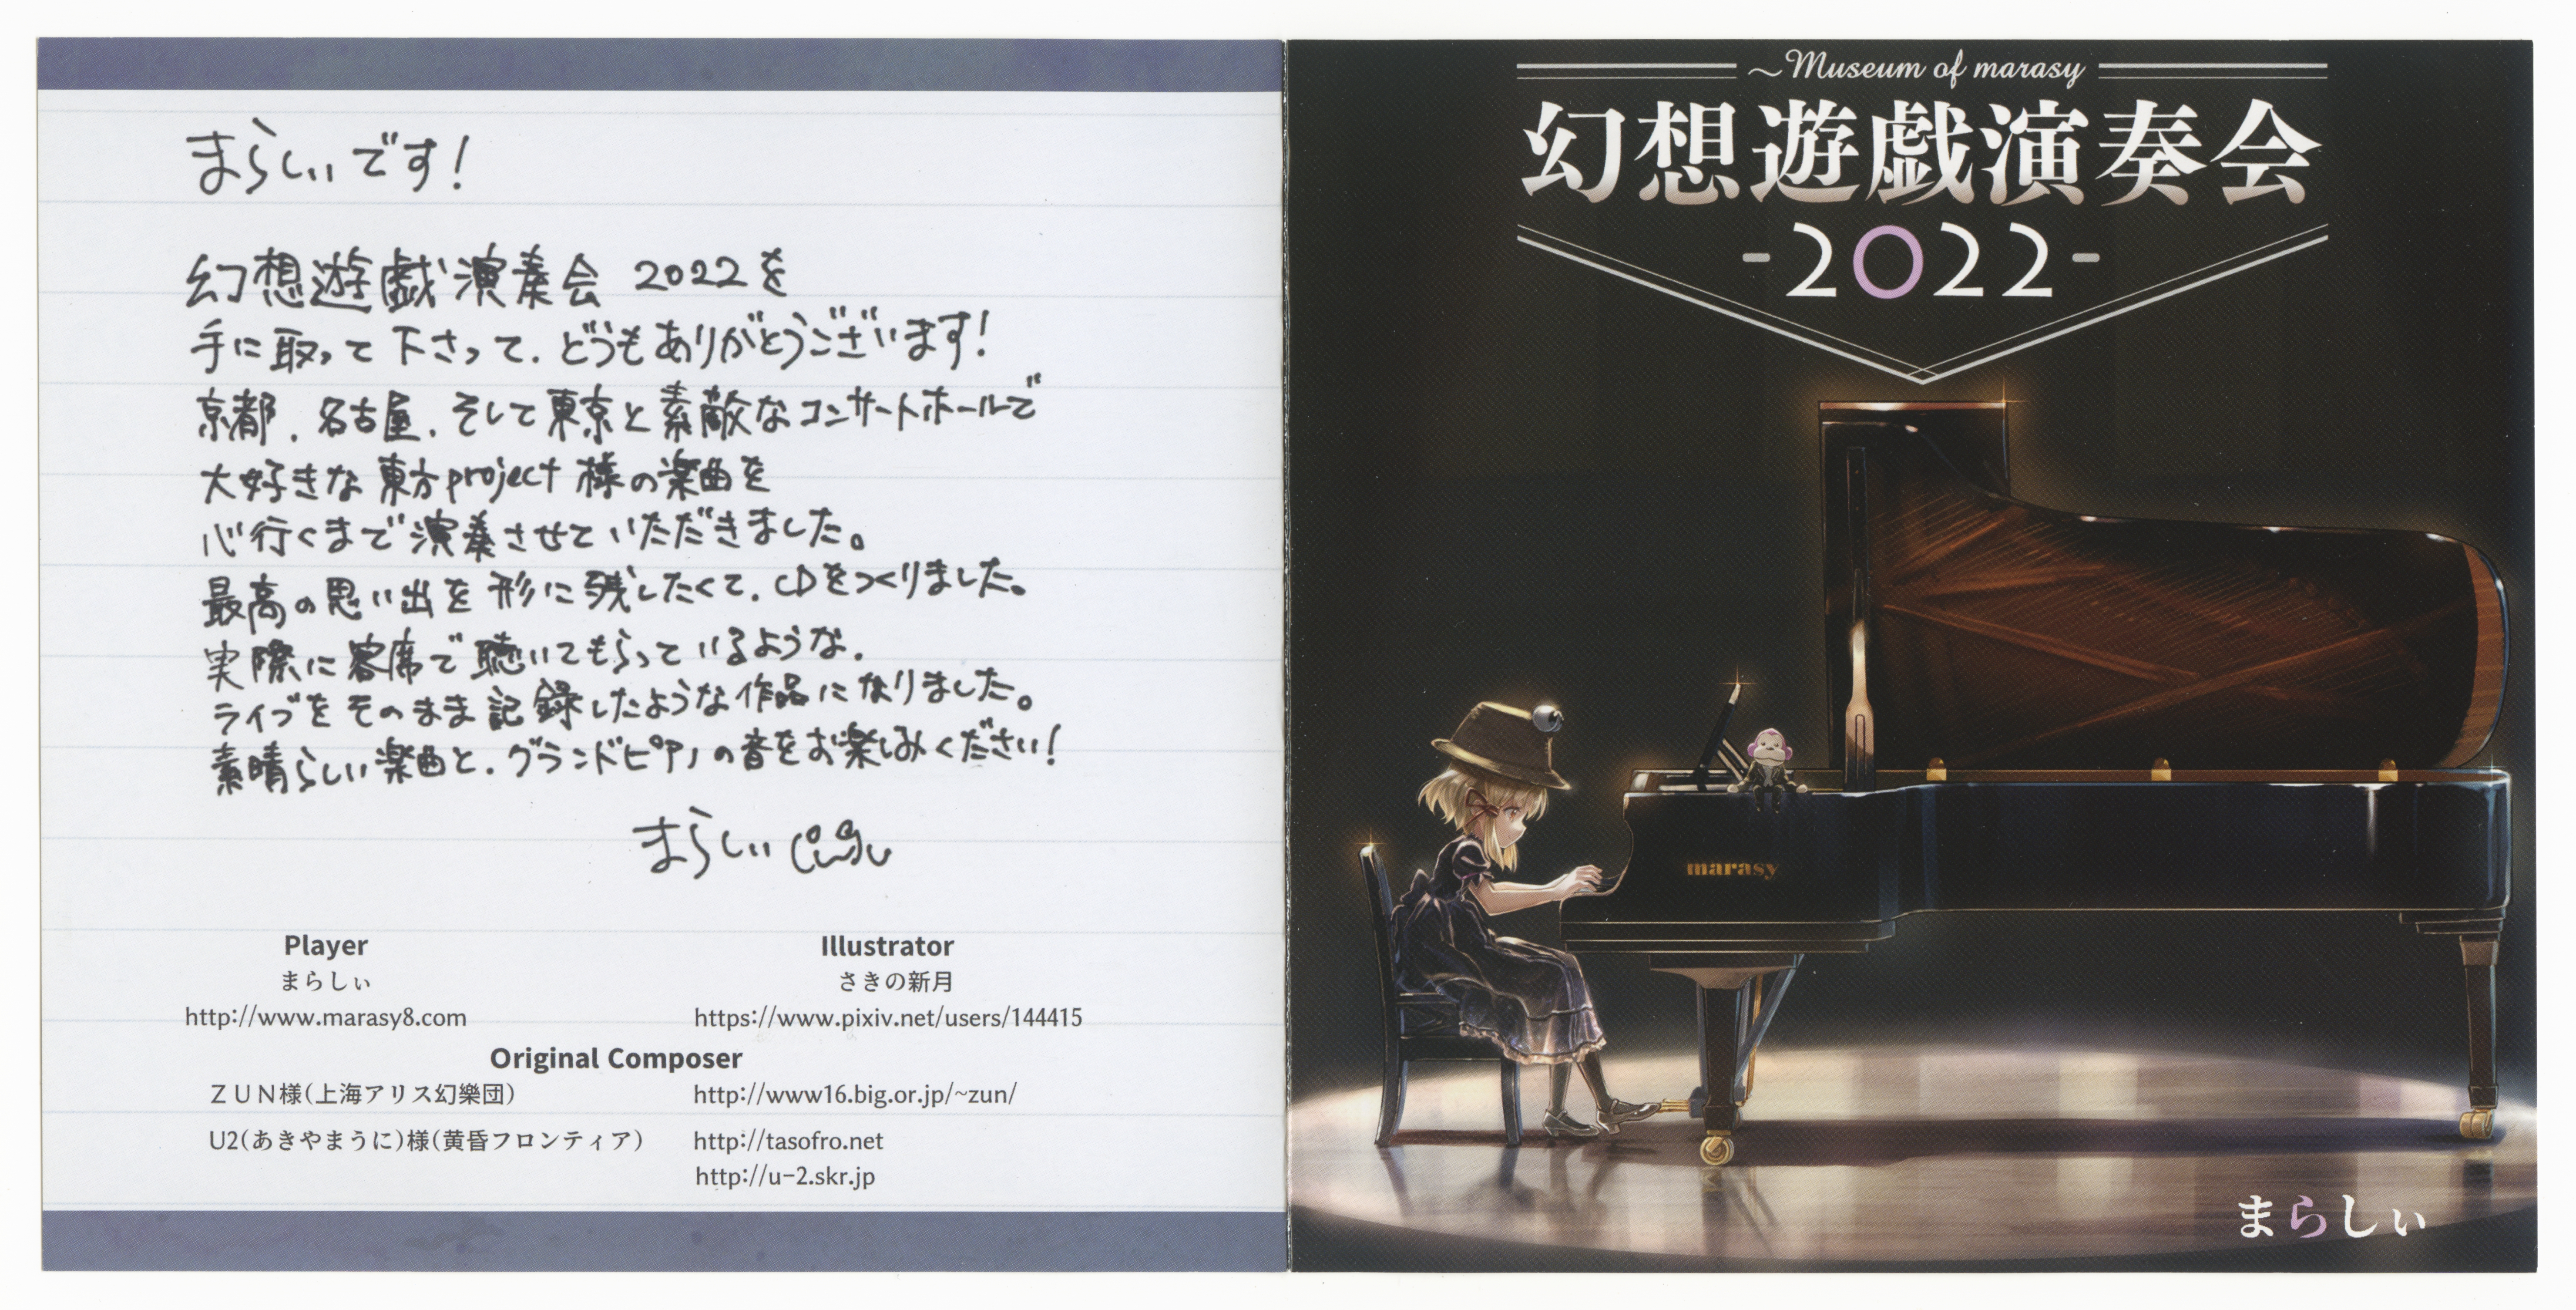 まらしぃです！
幻想遊戯演奏会 2022を
手に取って下さって、どうもありがとうございます！
京都、名古屋、そして東京と素敵なコンサートホールで
大好きな東方project様の楽曲を
心行くまで演奏させていただきました。
最高の思い出を形に残したくて、CDをつくりました。
実際に客席で聴いてもらっているような、
ライブをそのまま記録したような作品になりました。
素晴らしい楽曲と、グランドピアノの音をお楽しみください！
まらしぃ
Player
まらしぃ
http://www.marasy8.com
Illustrator
さきの新月
https://www.pixiv.net/users/144415
Original Composer
ＺＵＮ様(上海アリス幻樂団)
http://www16.big.or.jp/~zun/
U2(あきやまうに)様(黄昏フロンティア)
http://tasofro.net
http://u-2.skr.jp
～Museum of marasy
幻想遊戯演奏会
-2022-
marasy
まらしぃ